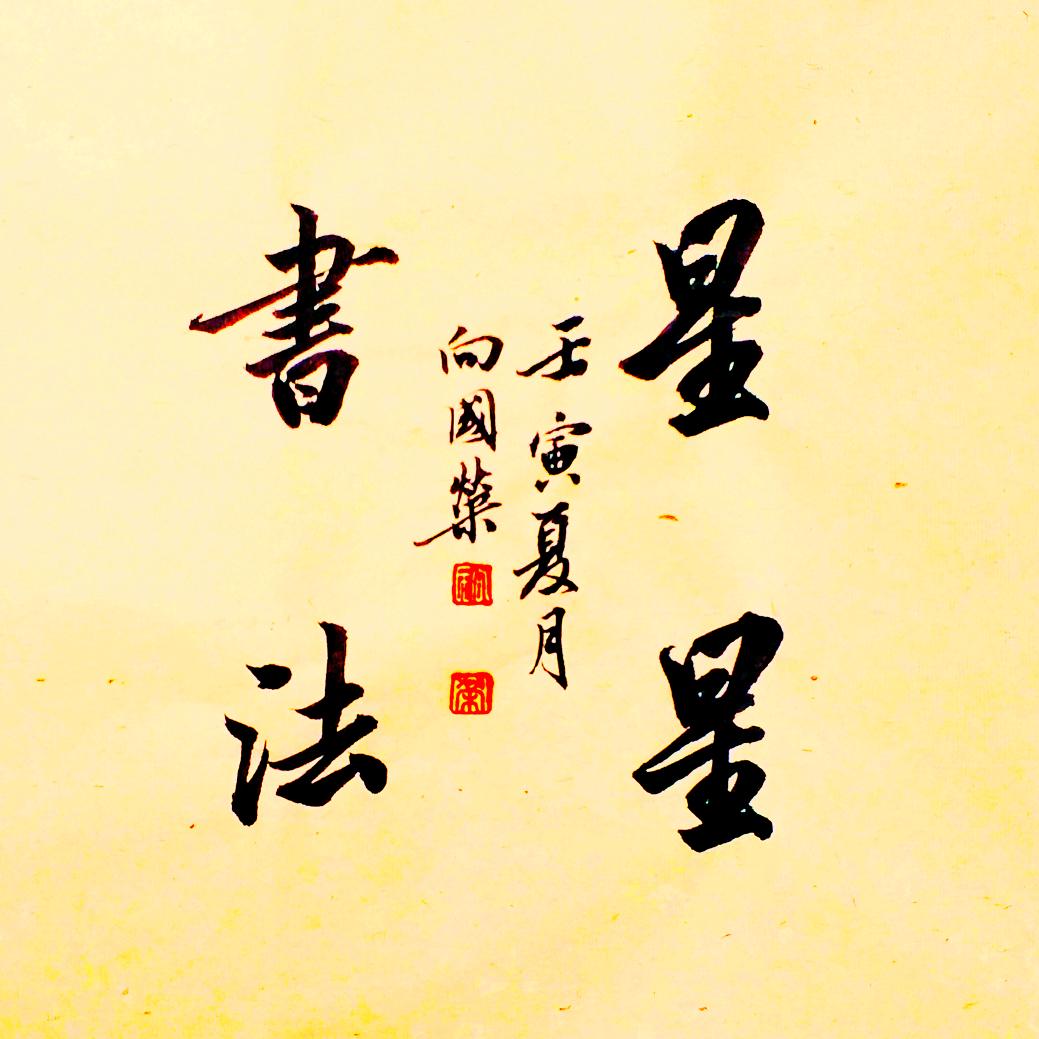 星星
壬寅夏月
向國榮
書法